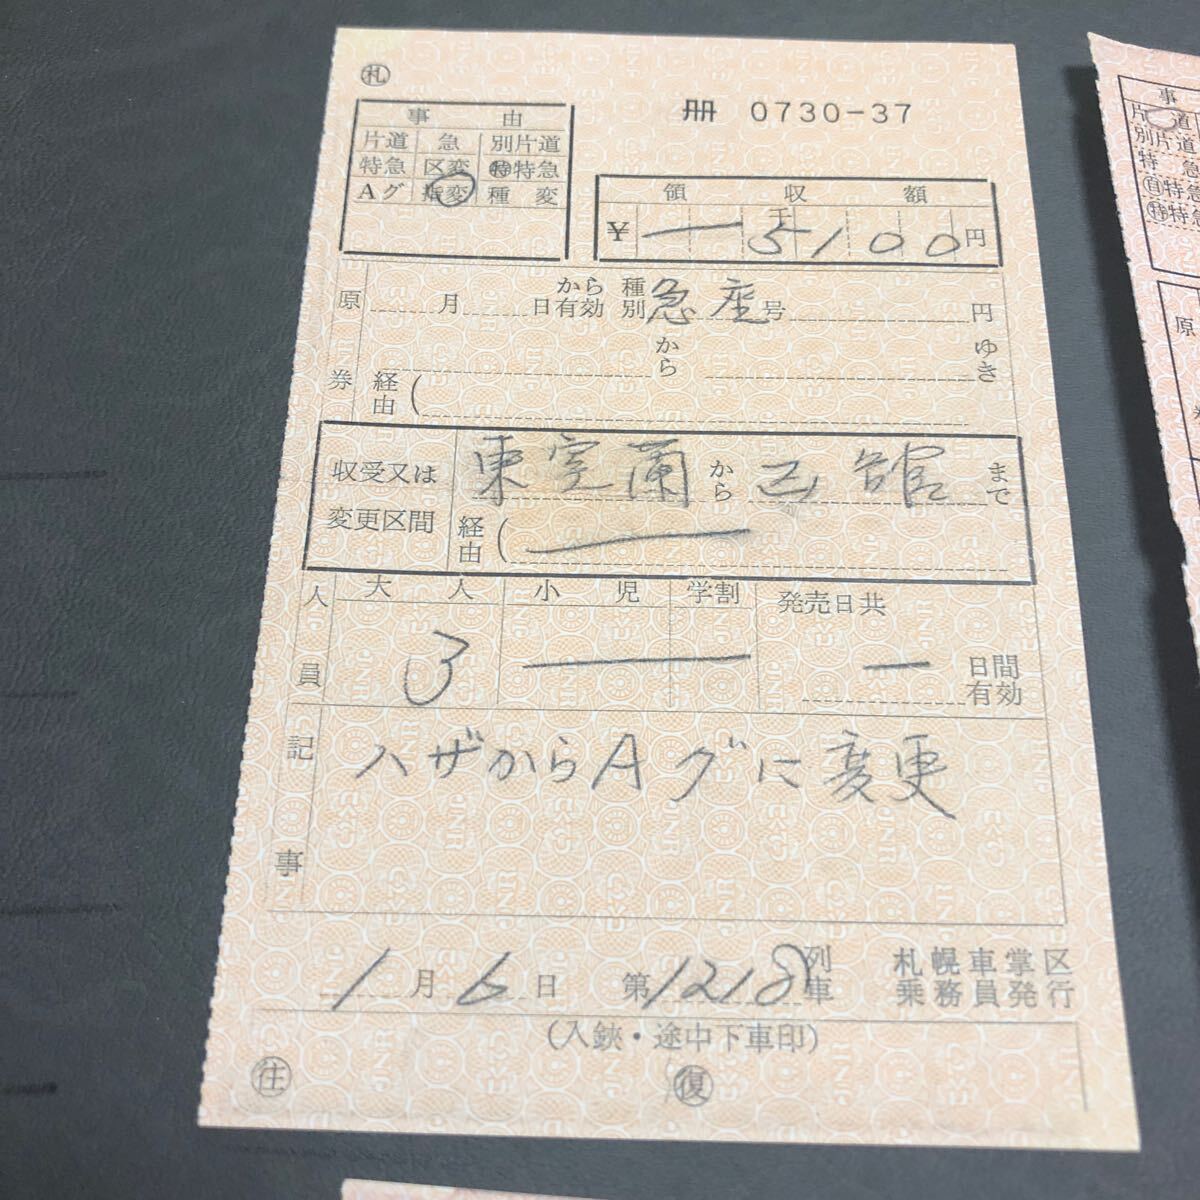 ㊞札
冊 0730-37
事 由
片道 急 別片道
特急 区変 ㊕特急
Aグ 指変 種変
領 収 額
¥ 一 千 5100 円
原券
月 日から有効 種別 急座 号 円
から ゆき
経由 (
収受又は変更区間
東室蘭 から 函館 まで
経由 (
人員 大人 小児 学割 発売日共
3 日間有効
記事
ハザからAグに変更
1月6日 第1218列車 札幌車掌区乗務員発行
(入鋏・途中下車印)
往 復
事
片道
別片道
特急
㊐特急
㊕特急
原